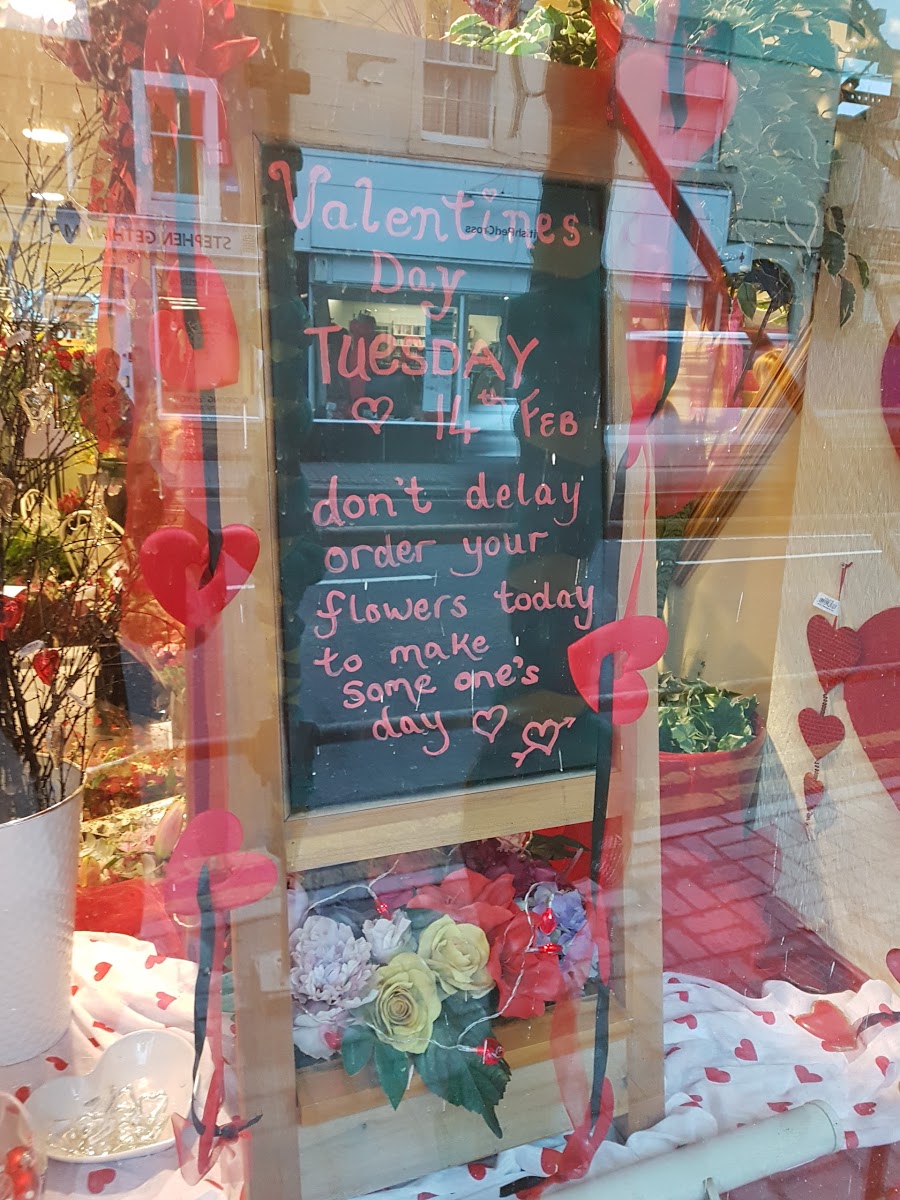 Valentines
Day
TUESDAY
14th FEB
don't delay
order your
flowers today
to make
some one's
day
STEPHEN GETH
itishRedCross